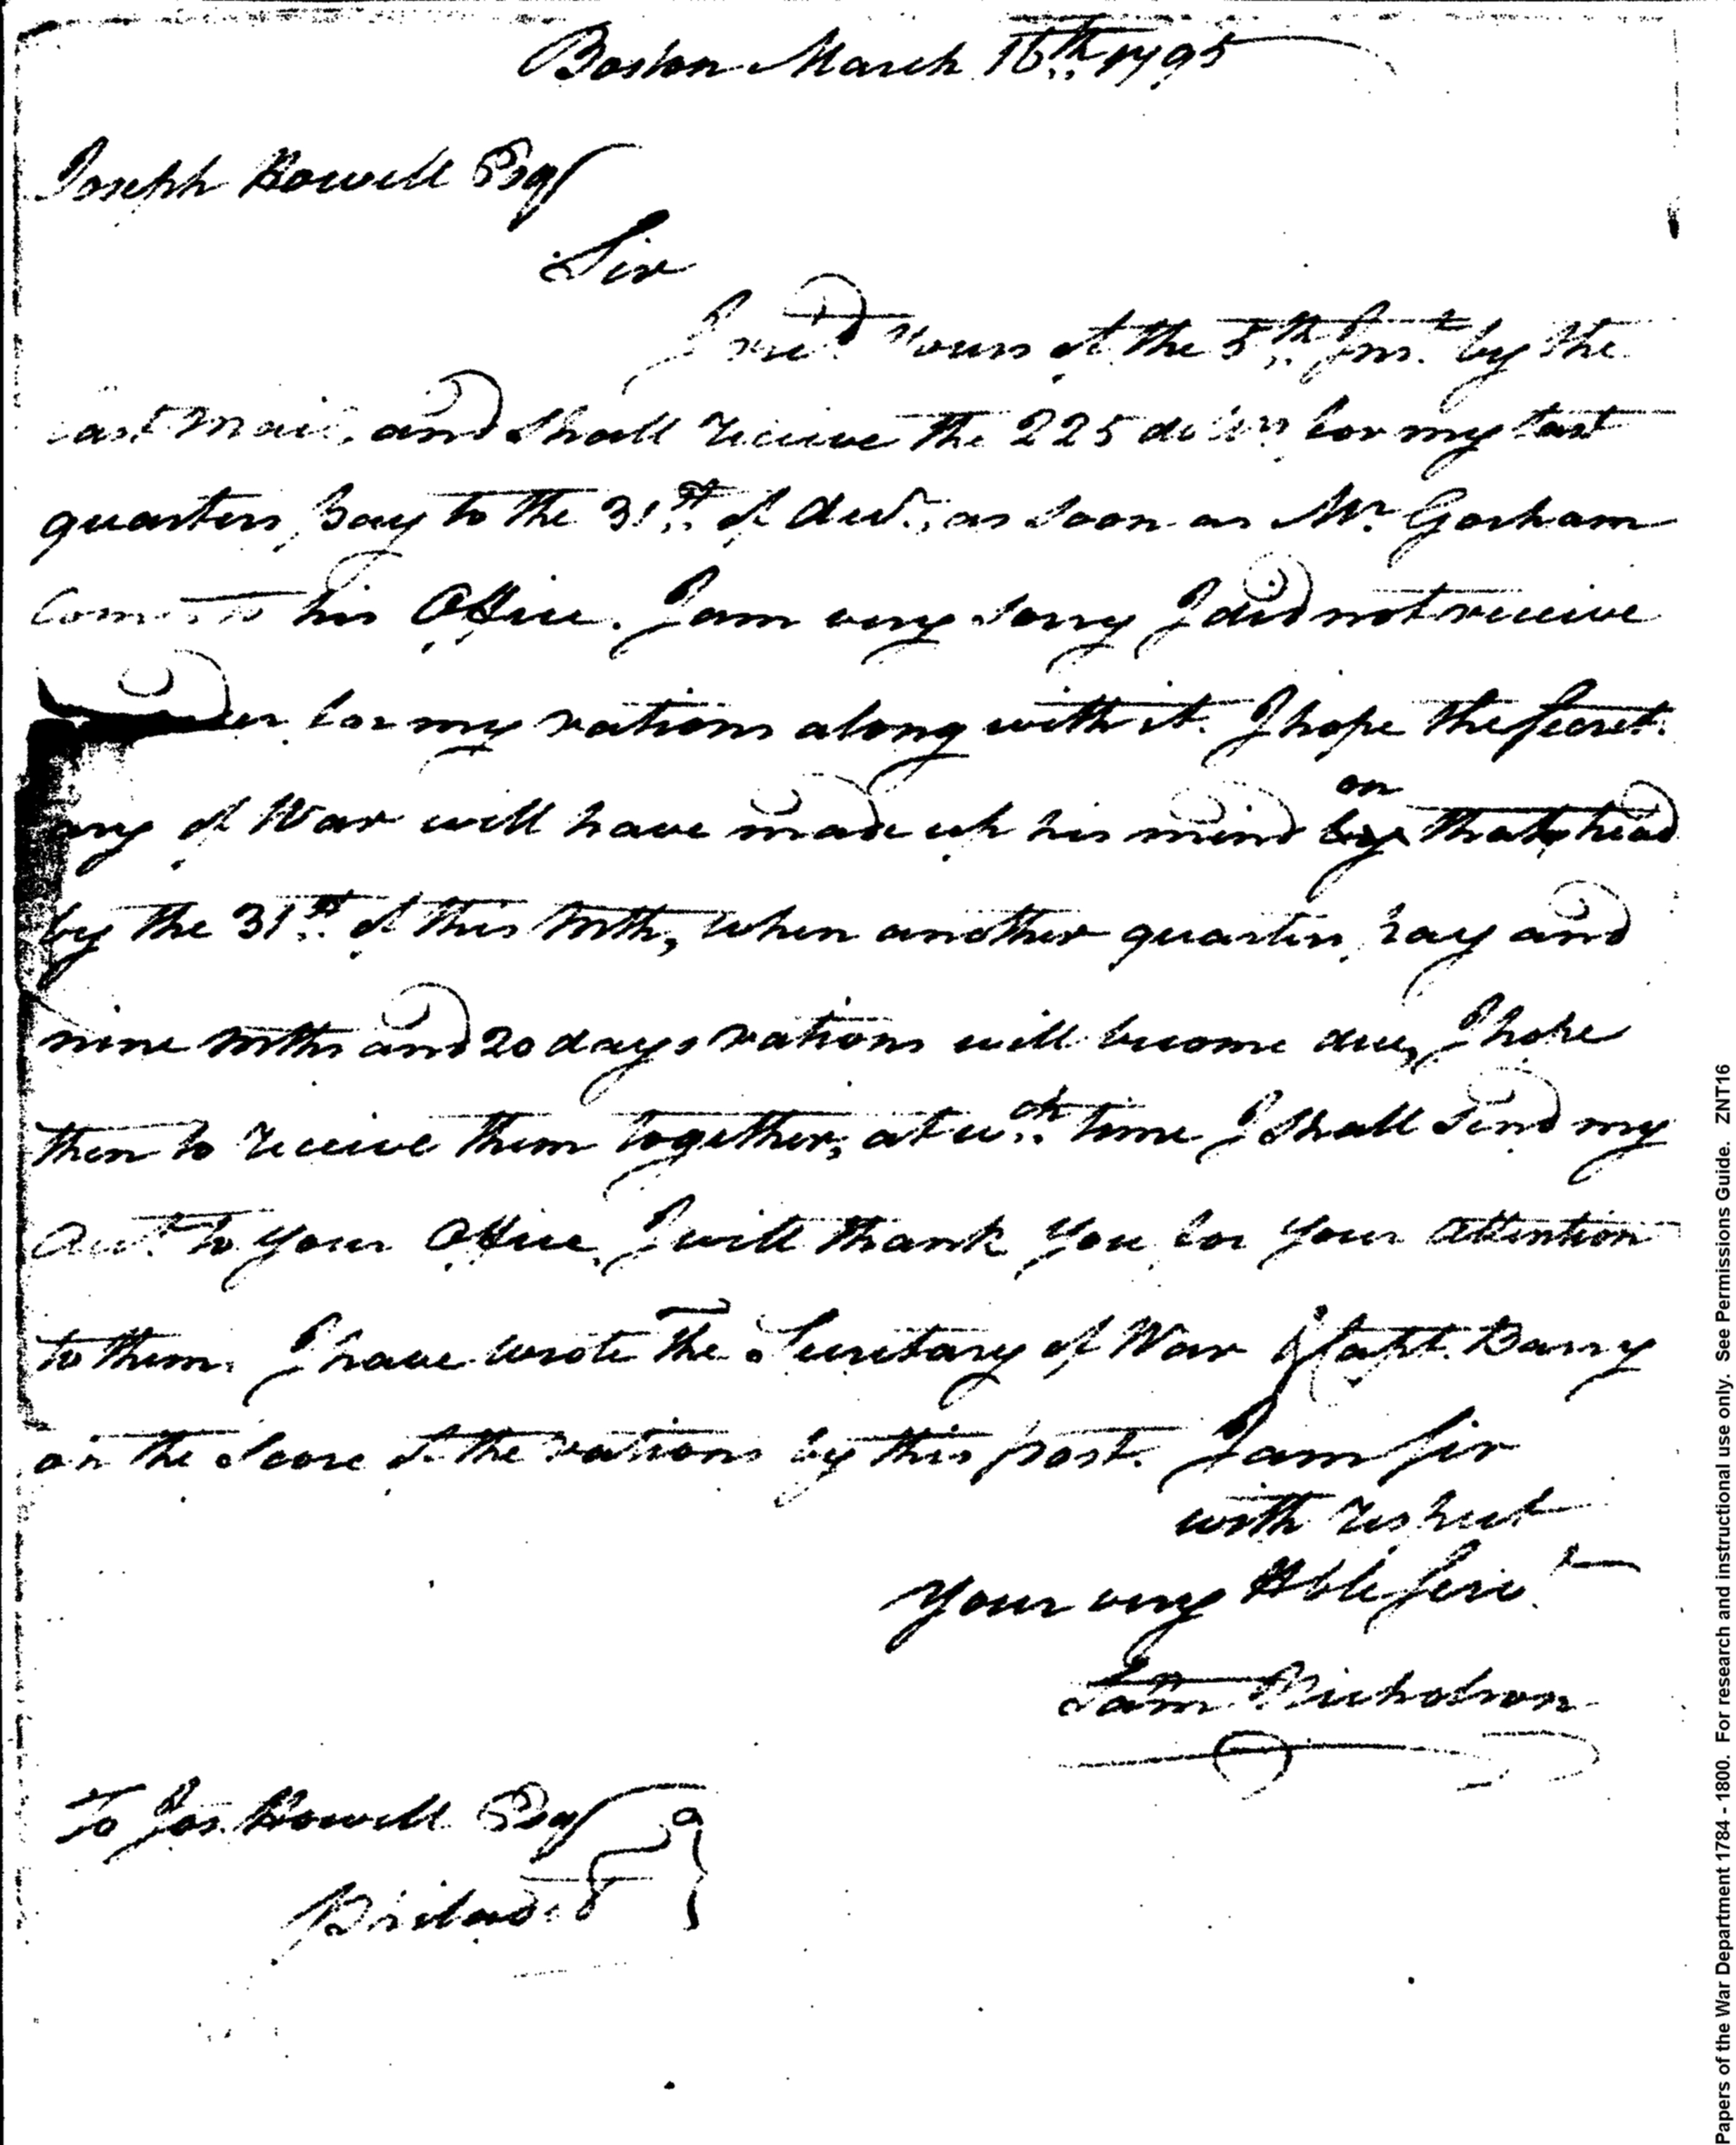 Boston March 16th 1795
Joseph Howell Esqr
Sir
I recd. Yours of the 5th. Inst. by the
last Mail, and shall receive the 225 dollars for my last
quarters Pay to the 31st. of decr., as soon as Mr. Gorham
Comes to his Office. I am very sorry I did not receive
for my rations along with it. I hope the Secret-
ary of War will have made up his mind on by that head
by the 31st. of this Mth, when another quarters pay and
nine Mths and 20 days rations will become due, I hope
then to receive them together, at wch. time I shall send my
Acct. to your Office, I will thank you for your attention
to them. I have wrote the Secretary of War & Capt. Barry
on the Score of the rations by this post. I am Sir
with respect
Your very Hble Servt.
Sam Nicholson
To Jos. Howell Esqr
Philadea.
Papers of the War Department 1784 - 1800. For research and instructional use only. See Permissions Guide. ZNT16